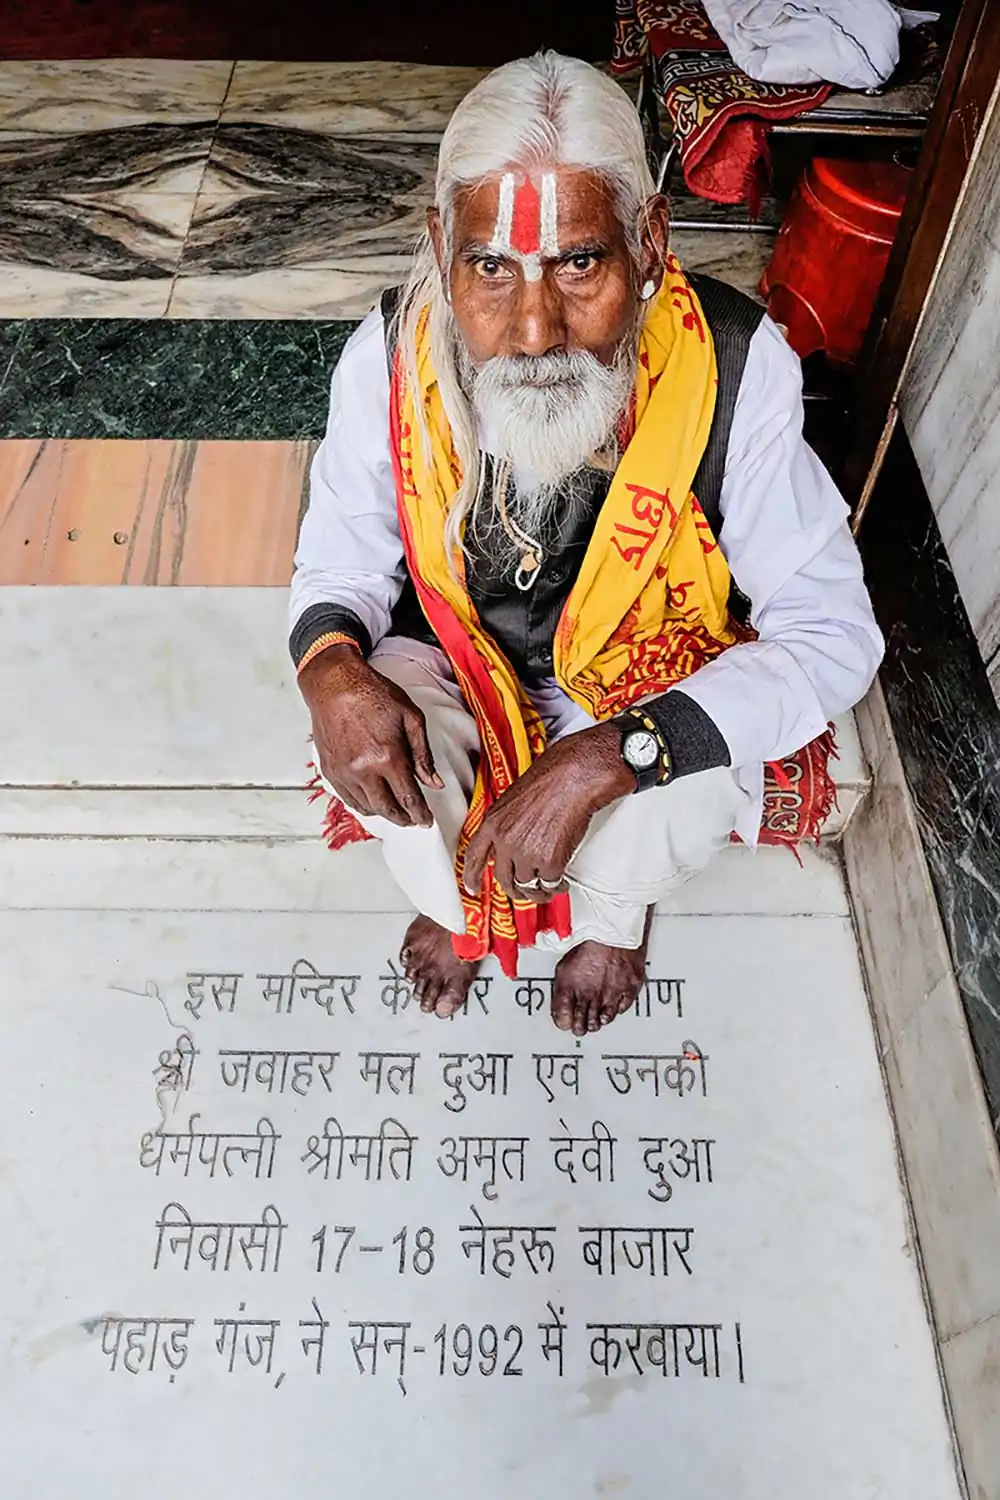 राधे
इस मन्दिर के का
श्री जवाहर मल दुआ एवं उनकी
धर्मपत्नी श्रीमति अमृत देवी दुआ
निवासी 17-18 नेहरू बाजार
पहाड़ गंज, ने सन्-1992 में करवाया।